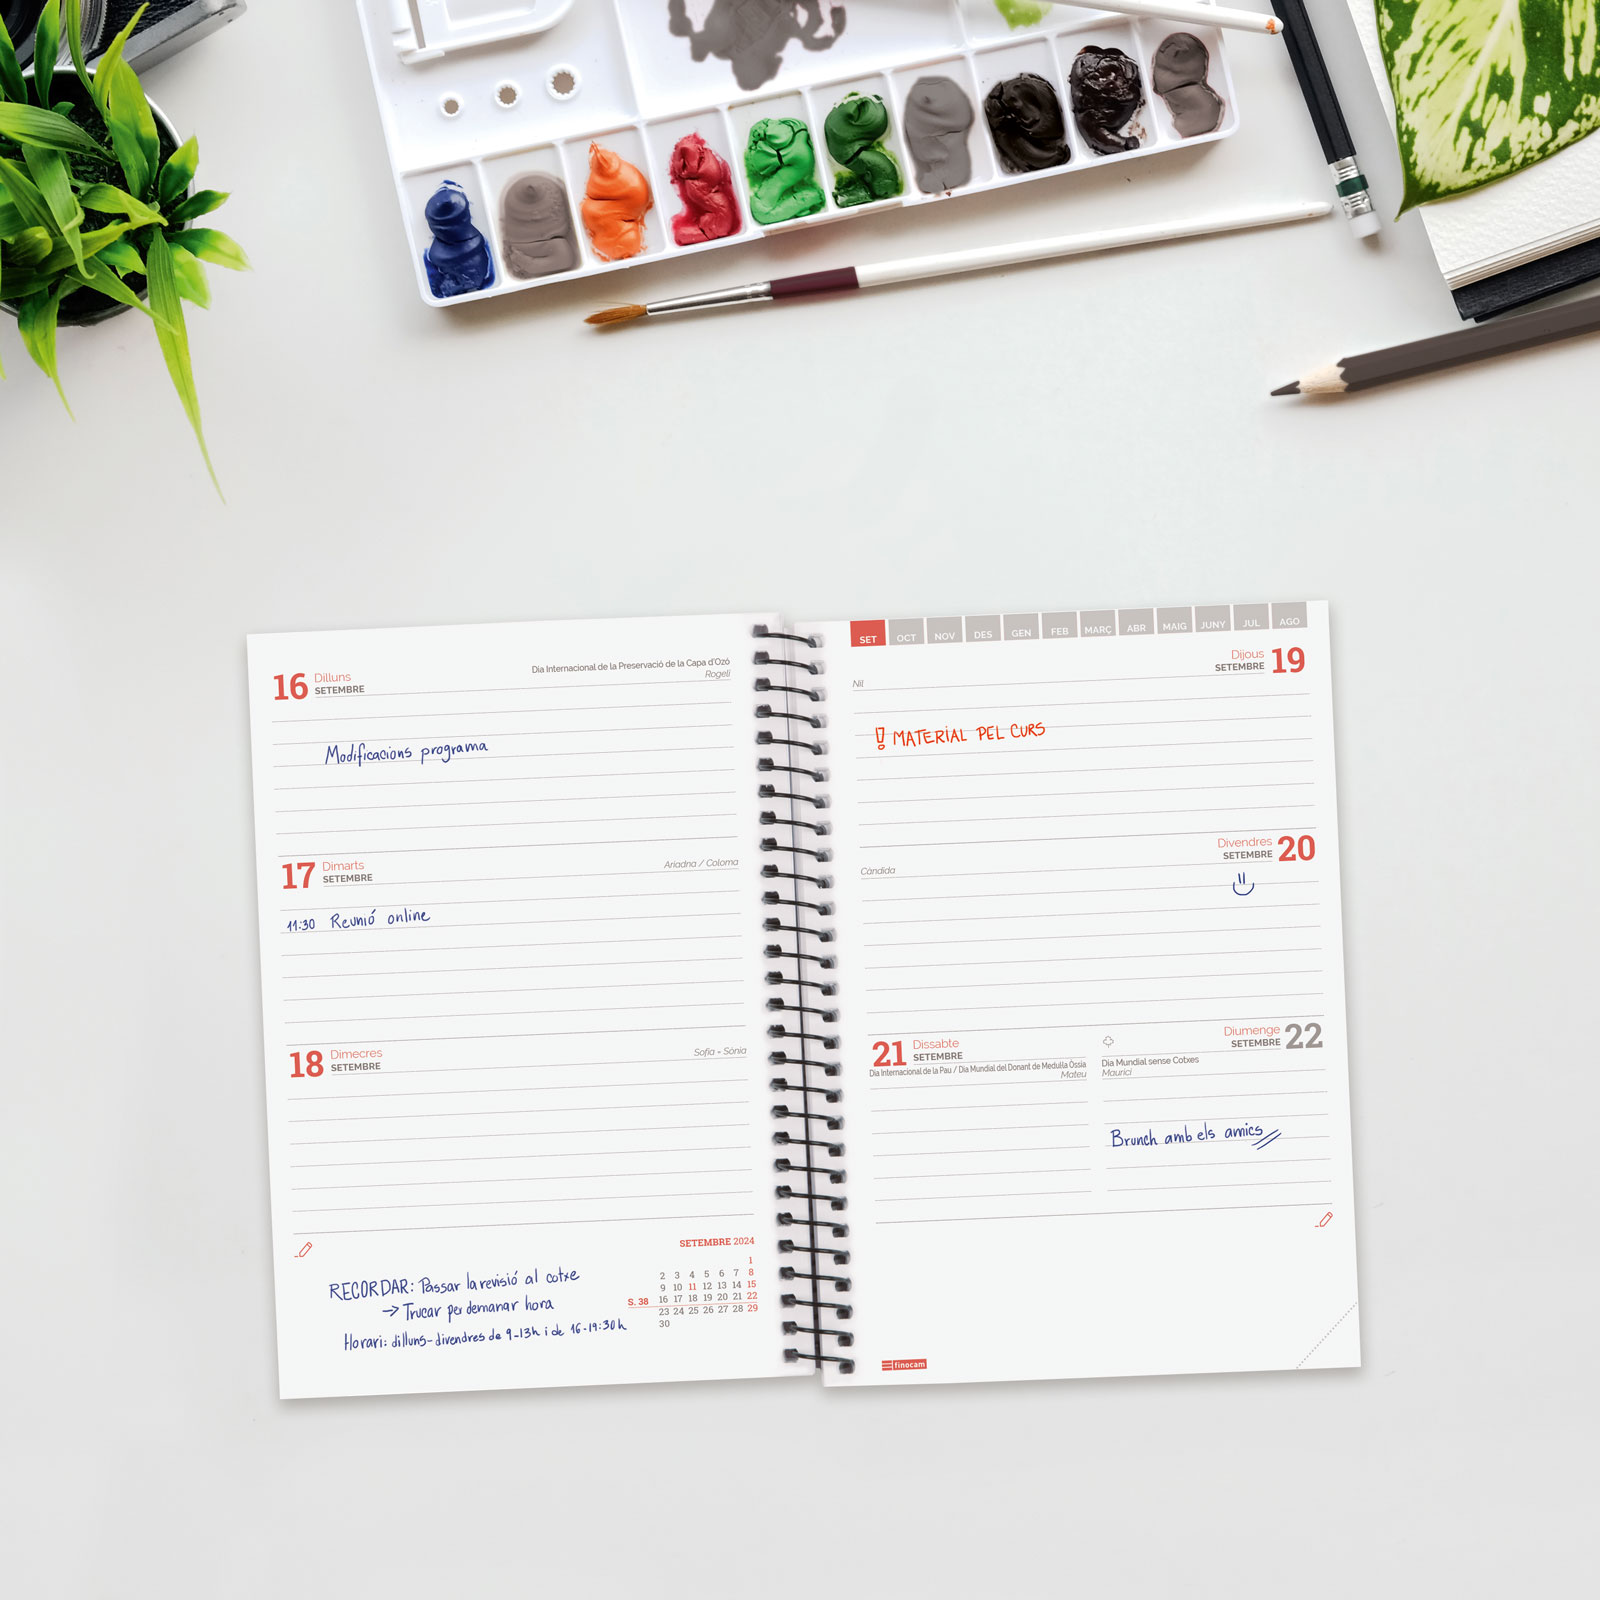 16 Dilluns
SETEMBRE
Dia Internacional de la Preservació de la Capa d'Ozó
Rogeli
Modificacions programa
17 Dimarts
SETEMBRE
Ariadna / Coloma
11:30 Reunió online
18 Dimecres
SETEMBRE
Sofia - Sònia
RECORDAR: Passar la revisió al cotxe
→ Trucar per demanar hora
Horari: dilluns-divendres de 9-13h i de 16-19:30h
SETEMBRE 2024
1
2 3 4 5 6 7 8
9 10 11 12 13 14 15
S. 38 16 17 18 19 20 21 22
23 24 25 26 27 28 29
30
SET OCT NOV DES GEN FEB MARÇ ABR MAIG JUNY JUL AGO
Dijous 19
SETEMBRE
Nil
! MATERIAL PEL CURS
Divendres 20
SETEMBRE
Càndida
21 Dissabte
SETEMBRE
Dia Internacional de la Pau / Dia Mundial del Donant de Medul·la Òssia
Mateu
Diumenge 22
SETEMBRE
Dia Mundial sense Cotxes
Maurici
Brunch amb els amics
finocam